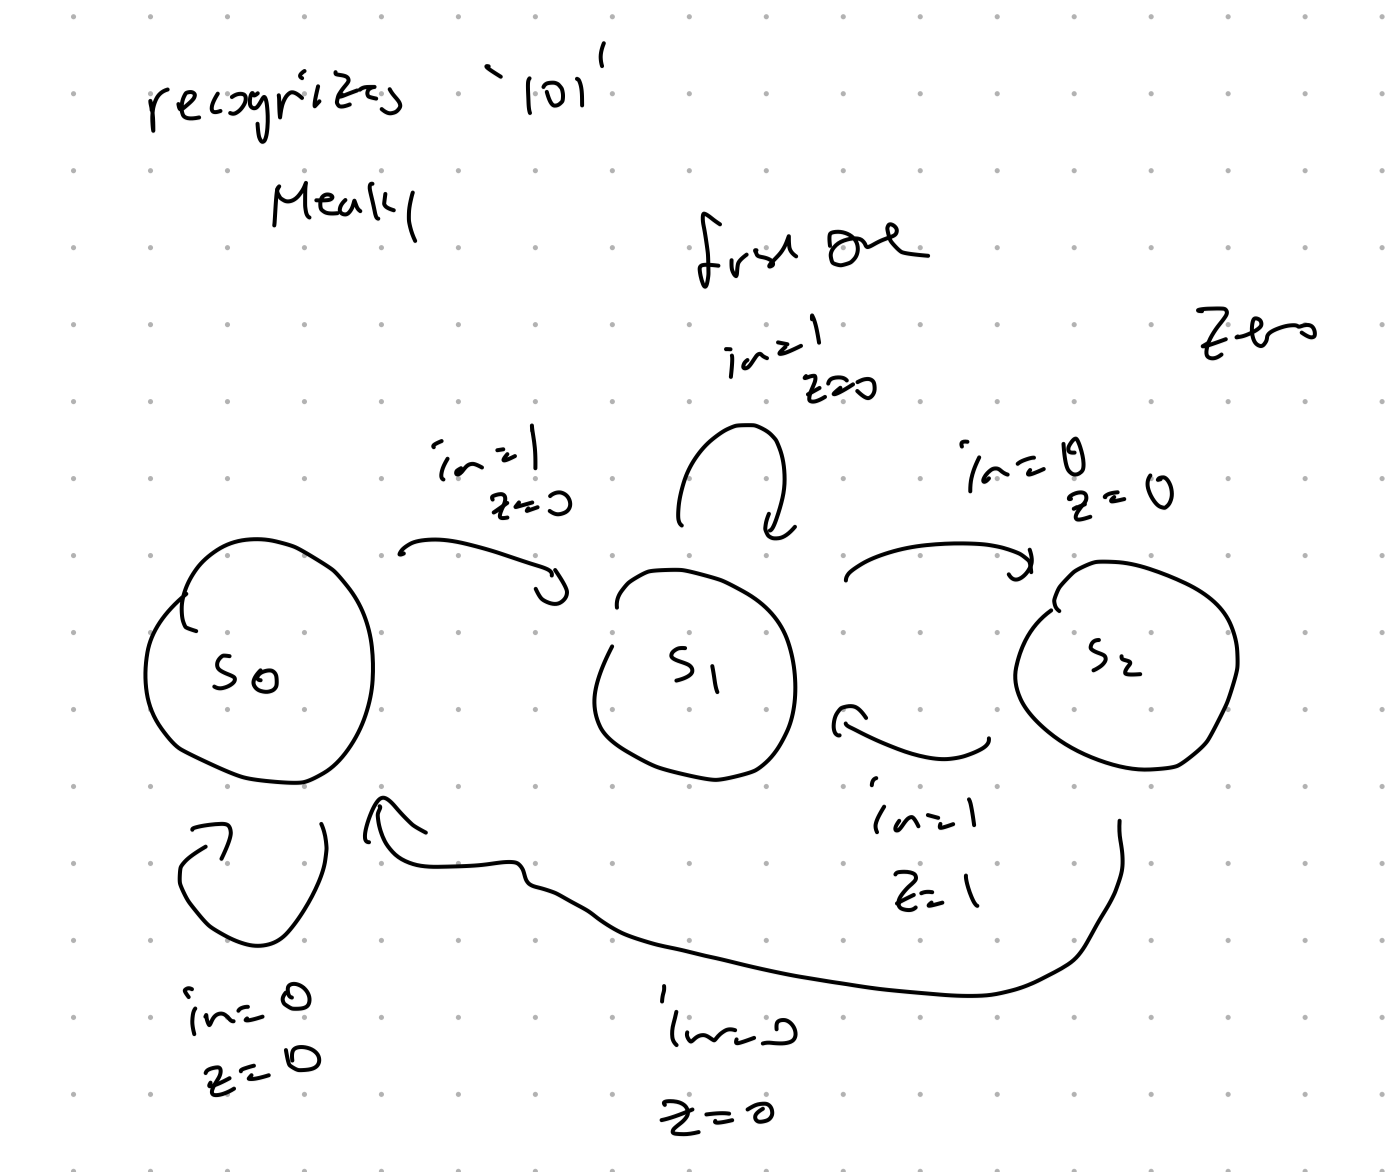 recognizes '101'
Mealy
first one
Zero
in=1
z=0
in=1
z=0
in=0
z=0
S0
S1
S2
in=1
z=1
in=0
z=0
in=0
z=0